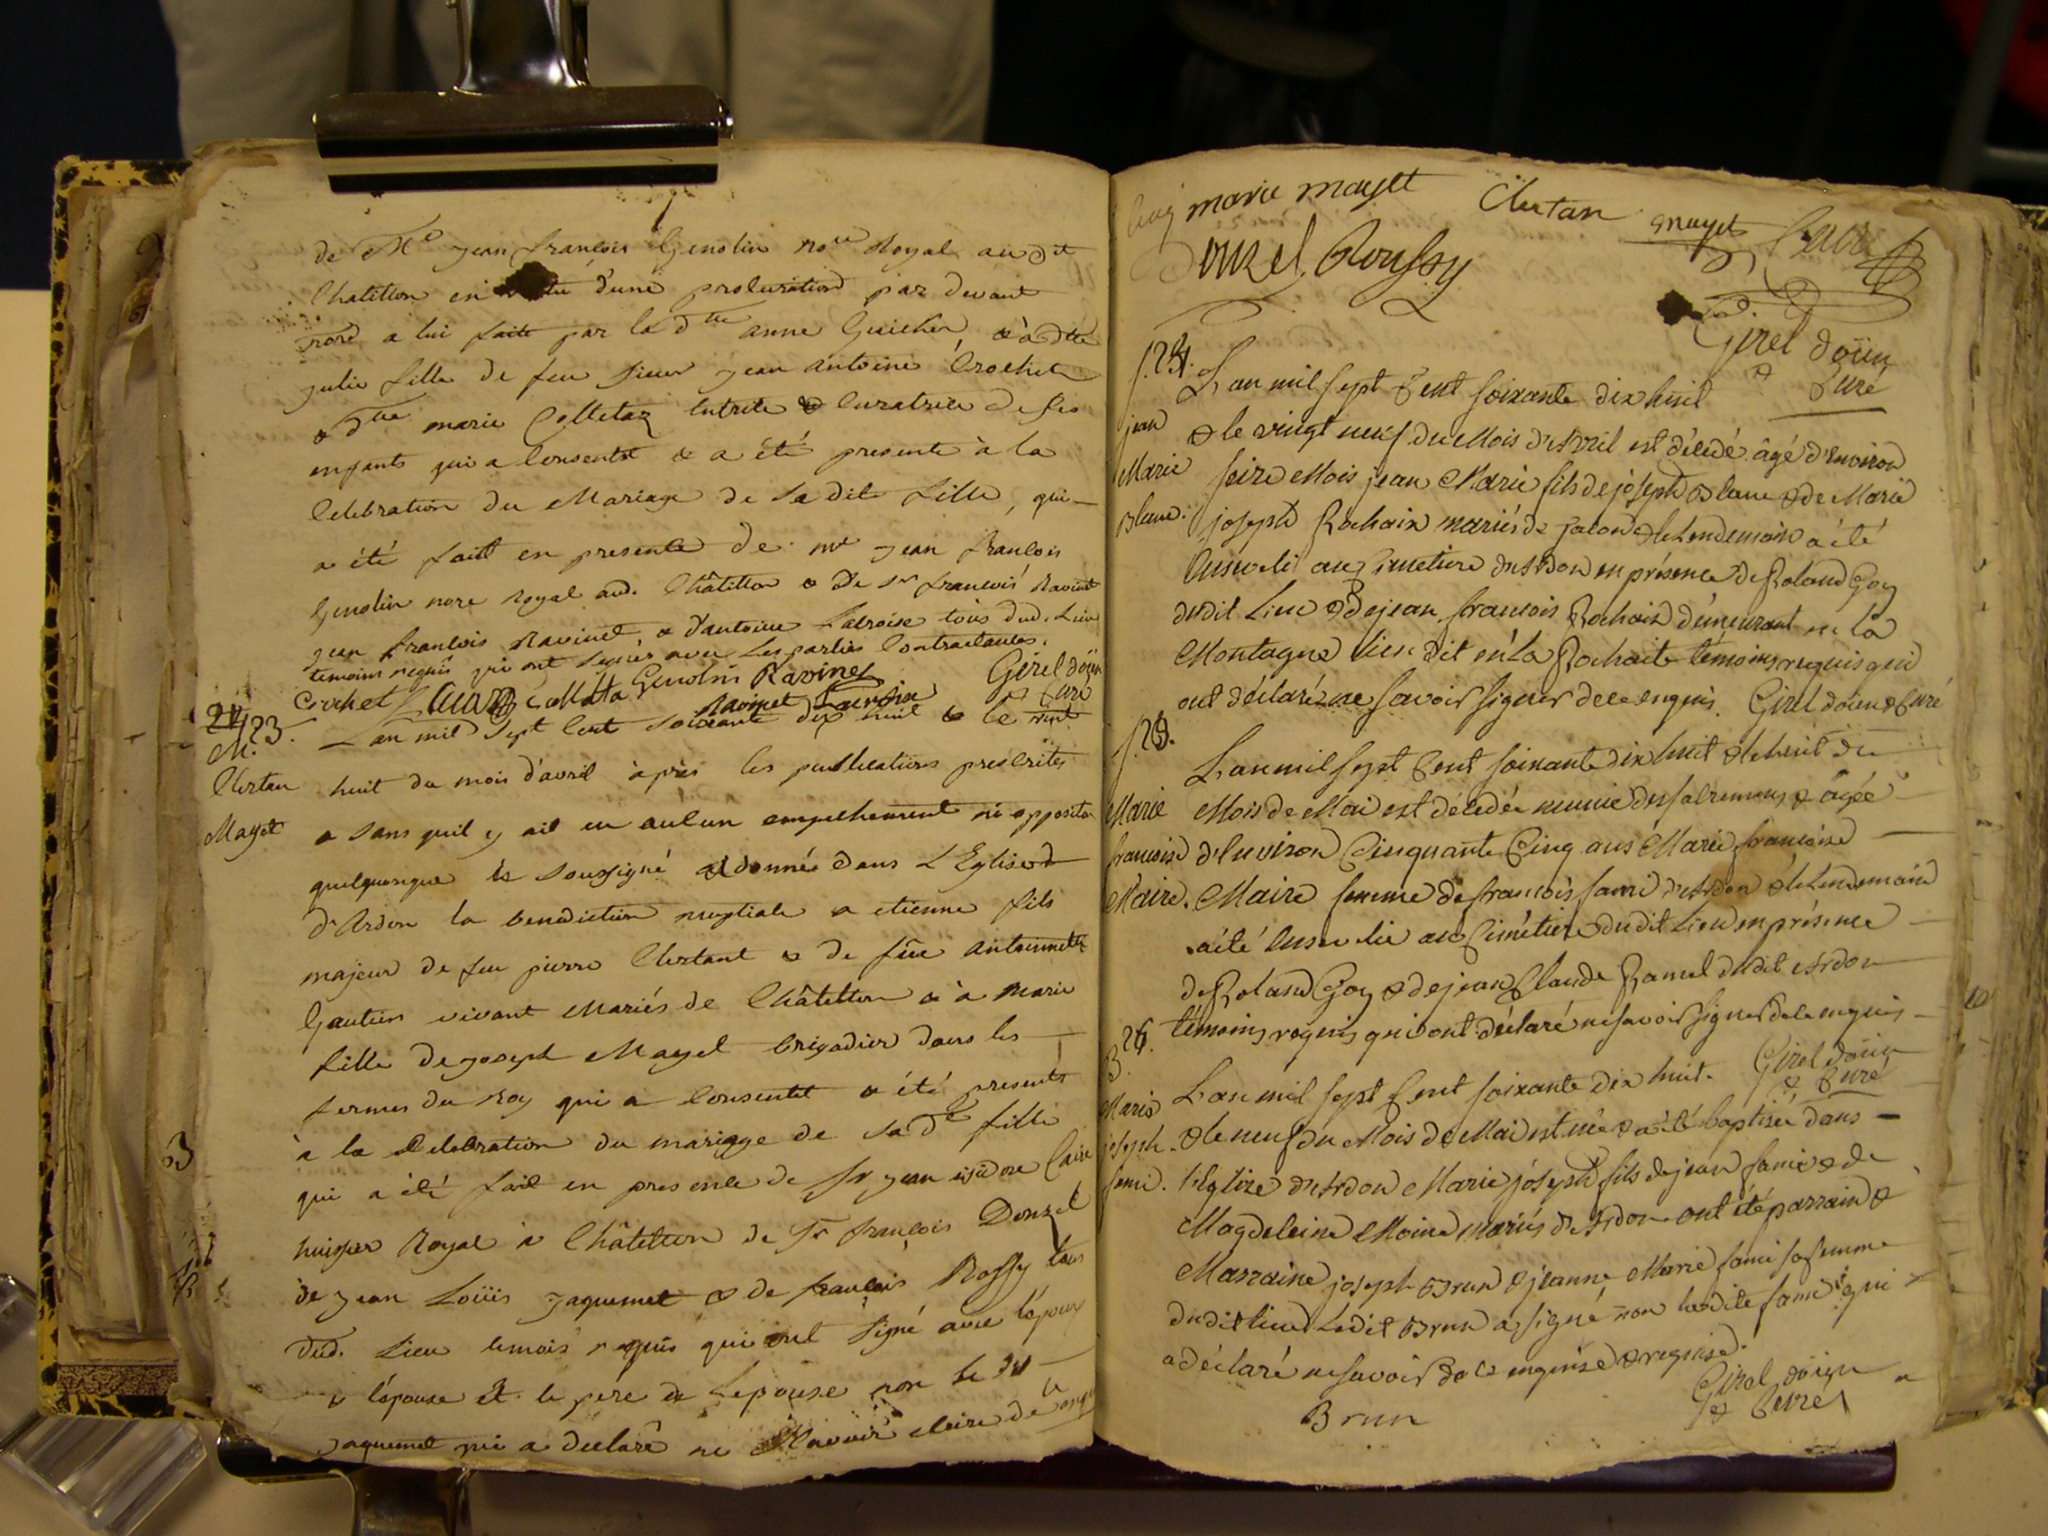 de Me jean françois Genolin nore Royal au dit
Chatillon en d'une procuration par devant
nore a lui faite par la dtte anne Guichon, & à dtte
julie fille de feu sieur jean antoine Crochet
& dtte marie Colletaz tutrice & Curatrice de ses
enfants qui a Consentit & a été presente à la
Celebration du Mariage de sa dite fille, qui
a été fait en presence de mr jean françois
Genolin nore royal aud. Châtillon & de sr françois Ravinet
jean françois Ravinet, & d'antoine Lacroise tous dud. Lieu
temoins requis qui ont signés avec les parties Contractantes.
Crochet Genolin Ravinet Girel doüen
Ravinet & Curé
123. L'an mil sept Cent soixante dix huit & le vint
M.
Chertan huit du mois d'avril après les publications prescrites
Mayet & sans quil y ait eu aucun empechement ni opposition
quelquonque Je soussigné ai donnés dans L'Eglise
d'Ardon la benediction nuptiale a etienne fils
majeur de feu pierre Chertant & de füe antoinette
Gautier vivant Mariés de Châtillon & à marie
fille de joseph Mayet brigadier dans les
fermes du Roy qui a Consentit & été present
à la Celebration du mariage de sa de fille
qui a été fait en presence de sr jean isidore Caire
huissier Royal à Châtillon de Sr françois Donzel
de jean Loüis jaquemet & de françois Rossy tous
dud. Lieu temois requis qui ont signé avec l'époux
& l'épouse et le pere de l'epouse non le dt
jaquemet qui a declaré ne de ce enquis
marie mayet Chertan mayet Caire
Donzel Roussy
Girel doüen
& Curé
124. L'an mil sept Cent soixante dix huit
jean & le vingt neuf du Mois d'Avril est décédé âgé d'Environ
Marie seize Mois jean Marie fils de joseph Blanc & de Marie
Blanc. joseph Rochaix mariés de & le Lendemain a été
Enseveli au Cimetiere d'Ardon en présence de Roland Goy
dudit Lieu & de jean françois Rochaix demeurant en la
Montagne lieu dit en La Rochaite témoins requis qui
ont déclaré ne savoir signer de ce enquis. Girel doüen & Curé
125.
L'an mil sept Cent soixante dix huit & le huit du
Marie Mois de Mai est décédée munie des sacremens & âgée
francoise d'Environ Cinquante Cinq ans Marie francoise
Maire. Maire femme de francois famé d'Ardon & le Lendemain
a été Ensevelie au Cimétiere dudit Lieu en présence
de Roland Goy & de jean Claude Ramel dudit Ardon
témoins requis qui ont déclaré ne savoir signer de ce enquis
126.
B. Girel doüen
L'an mil sept Cent soixante dix huit. & Curé
Marie
joseph & le neuf du Mois de Mai est né & a été baptisé dans
famé. l'Eglise d'Ardon Marie joseph fils de jean famé & de
Magdeleine Moine mariés d'Ardon ont été parrain &
Marraine joseph Brun & jeanne Marie famé sa femme
dudit lieu Ledit Brun a signé non ladite famé qui
a déclaré ne savoir de ce enquise & requise.
Girel doüen
Brun & Curé